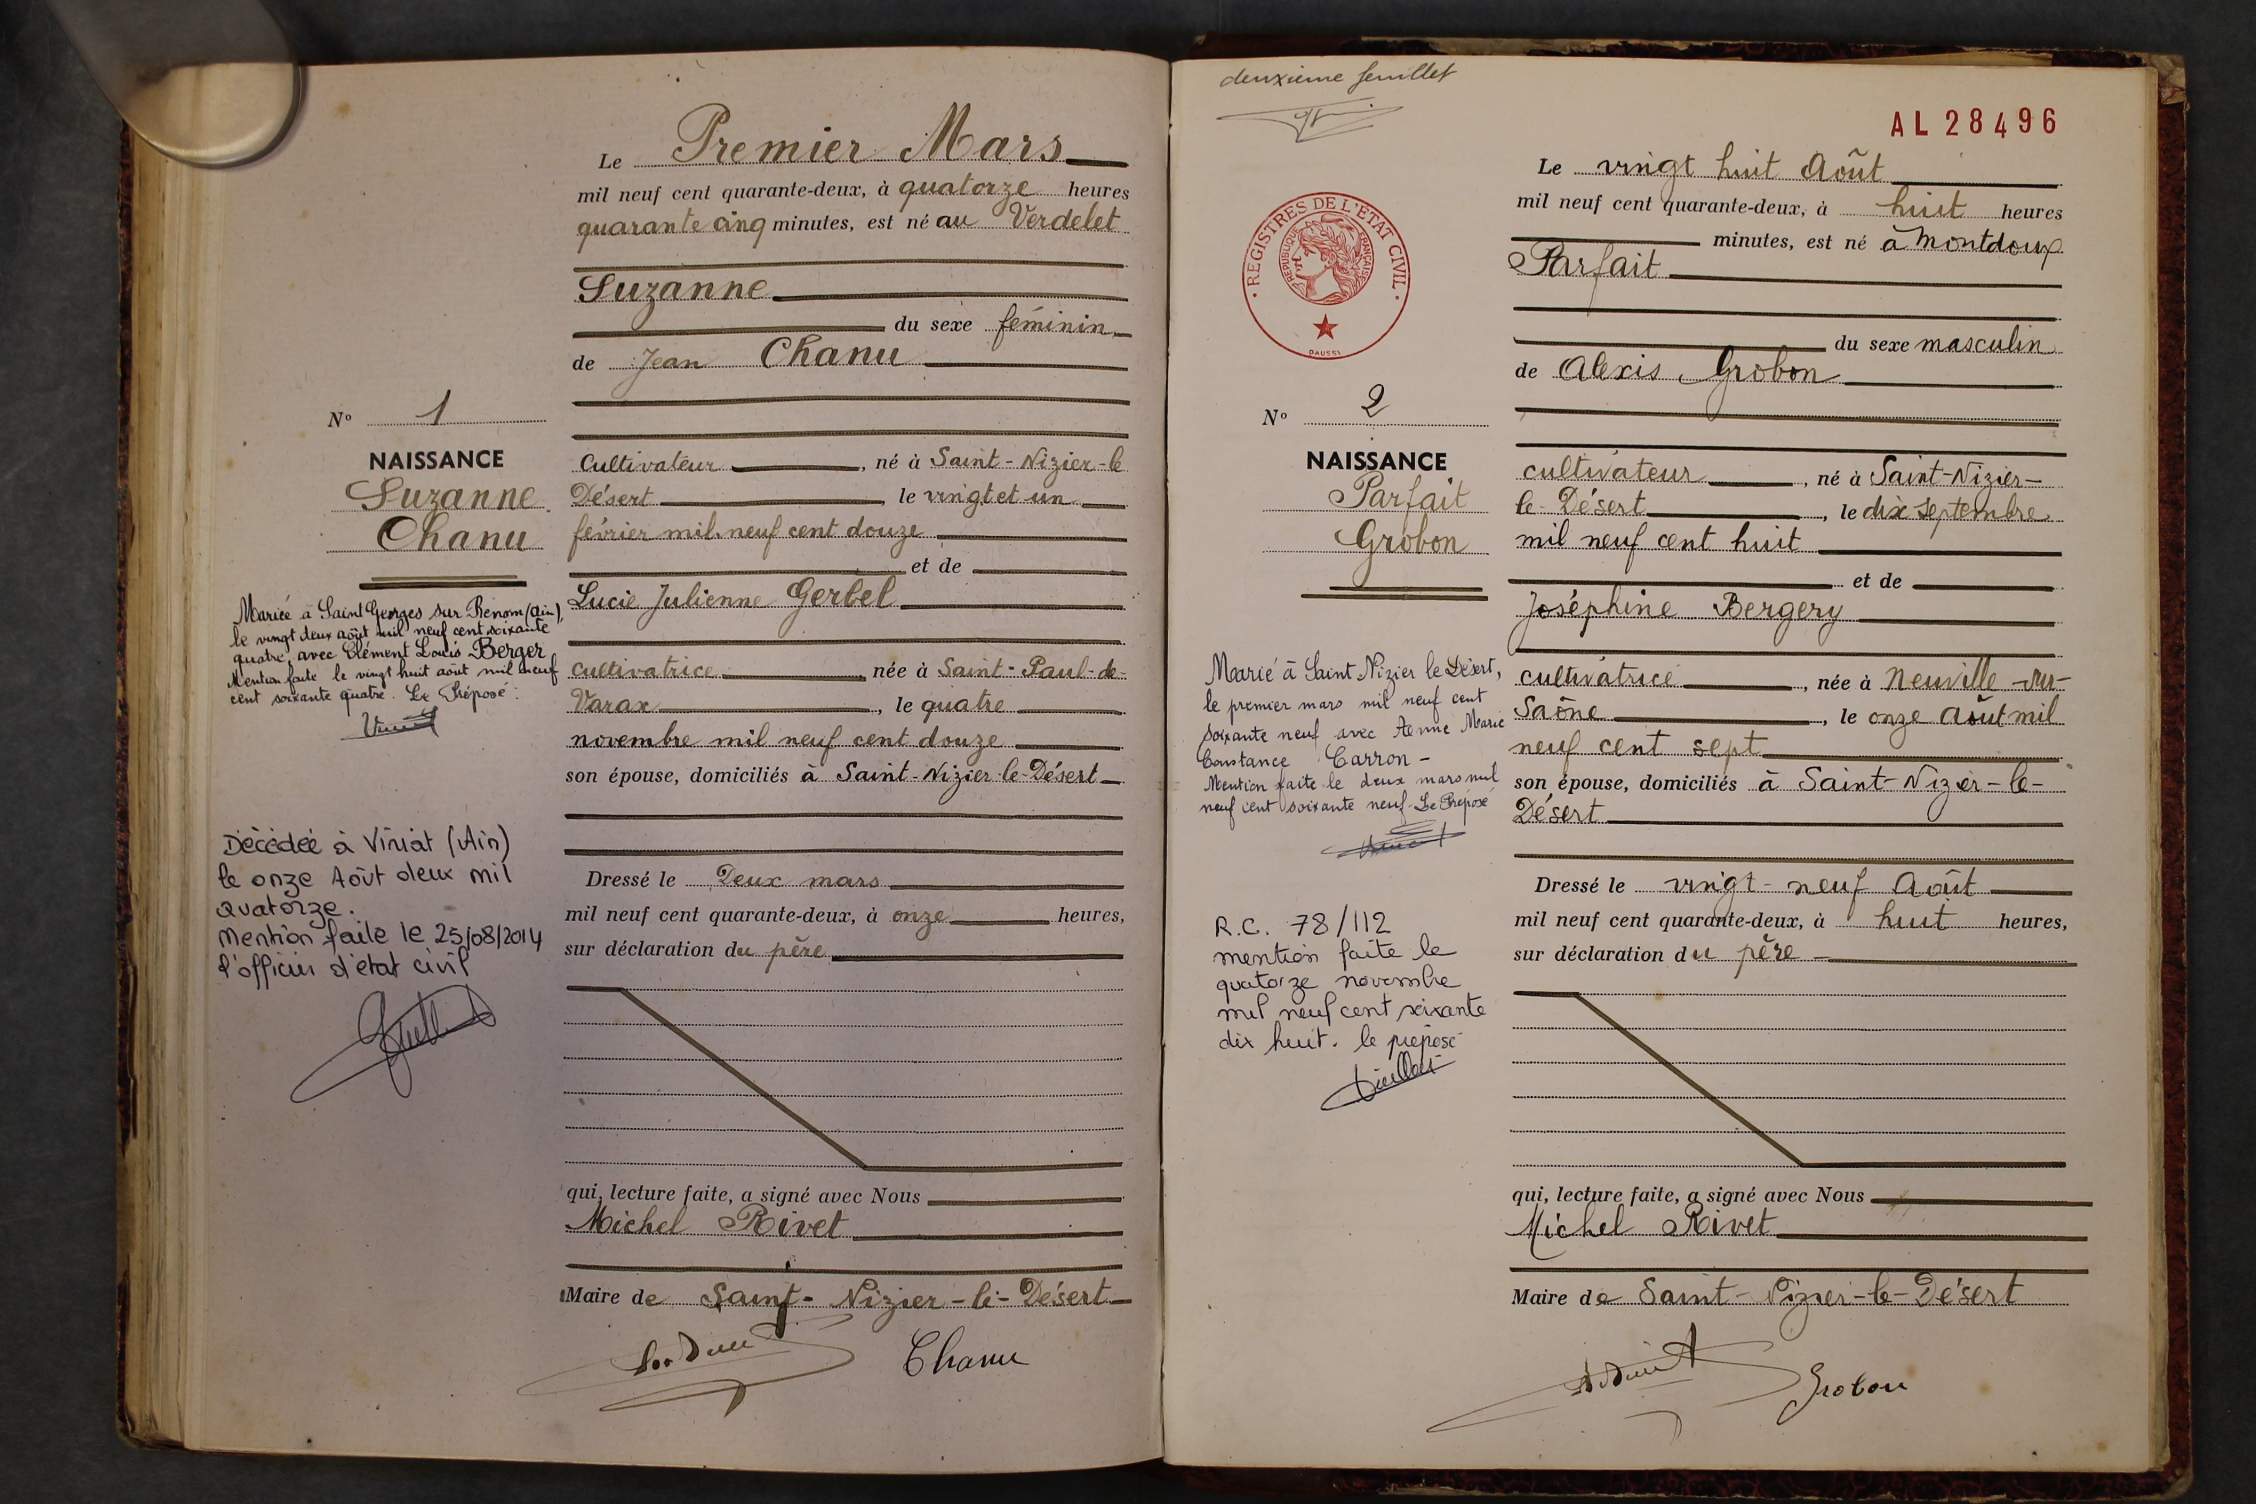 Le Premier Mars
mil neuf cent quarante-deux, à quatorze heures
quarante cinq minutes, est né au Verdelet
Suzanne
du sexe féminin
de Jean Chanu
N° 1
NAISSANCE
Suzanne
Chanu
Cultivateur, né à Saint-Nizier-le
Désert, le vingt et un
février mil neuf cent douze
et de
Lucie Julienne Gerbel
cultivatrice, née à Saint-Paul-de-
Varax, le quatre
novembre mil neuf cent douze
son épouse, domiciliés à Saint-Nizier-le-Désert
Mariée à Saint Georges sur Renom (Ain),
le vingt deux août mil neuf cent soixante
quatre, avec Clément Louis Berger
Mention faite le vingt huit août mil neuf
cent soixante quatre. Le Préposé :
Décédée à Viriat (Ain)
le onze Août deux mil
quatorze.
Mention faite le 25/08/2014
l'officier d'état civil
Dressé le Deux mars
mil neuf cent quarante-deux, à onze heures,
sur déclaration du père
qui, lecture faite, a signé avec Nous
Michel Rivet
Maire de Saint-Nizier-le-Désert
Chanu
deuxième feuillet
AL 28496
REGISTRES DE L'ÉTAT CIVIL
RÉPUBLIQUE FRANÇAISE
DAUSSI
Le vingt huit Août
mil neuf cent quarante-deux, à huit heures
minutes, est né à Montdoux
Parfait
du sexe masculin
de Alexis Grobon
N° 2
NAISSANCE
Parfait
Grobon
cultivateur, né à Saint-Nizier-
le-Désert, le dix septembre
mil neuf cent huit
et de
Joséphine Bergery
cultivatrice, née à Neuville-sur-
Saône, le onze Août mil
neuf cent sept
son épouse, domiciliés à Saint-Nizier-le-
Désert
Marié à Saint Nizier le Désert,
le premier mars mil neuf cent
soixante neuf avec Marie
Constance Carron -
Mention faite le deux mars mil
neuf cent soixante neuf. Le Préposé
R.C. 78/112
mention faite le
quatorze novembre
mil neuf cent soixante
dix huit. le préposé
Dressé le vingt-neuf Août
mil neuf cent quarante-deux, à huit heures,
sur déclaration du père
qui, lecture faite, a signé avec Nous
Michel Rivet
Maire de Saint-Nizier-le-Désert
Grobon